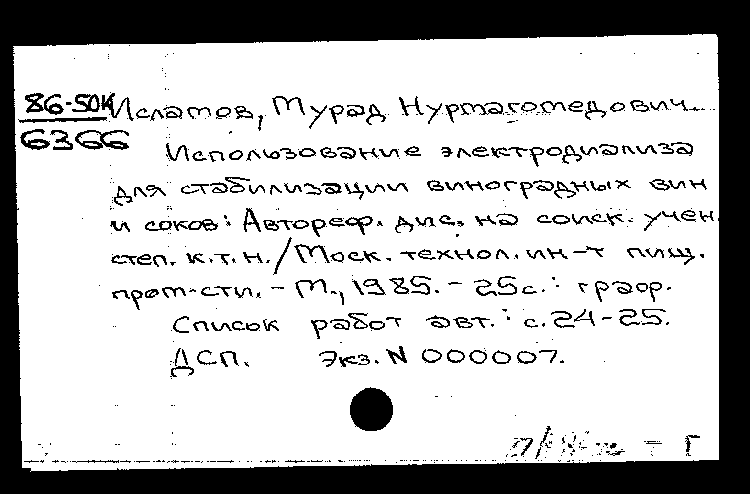 86-50К Исламов, Мурад Нурмагомедович.
6366
Использование электродиализа
для стабилизации виноградных вин
и соков: Автореф. дис. на соиск. учен.
степ. к.т.н./Моск. технол. ин-т пищ.
пром-сти. - М., 1985. - 25с.: граф.
Список работ авт.: с.24-25.
ДСП. Экз. N 000007.